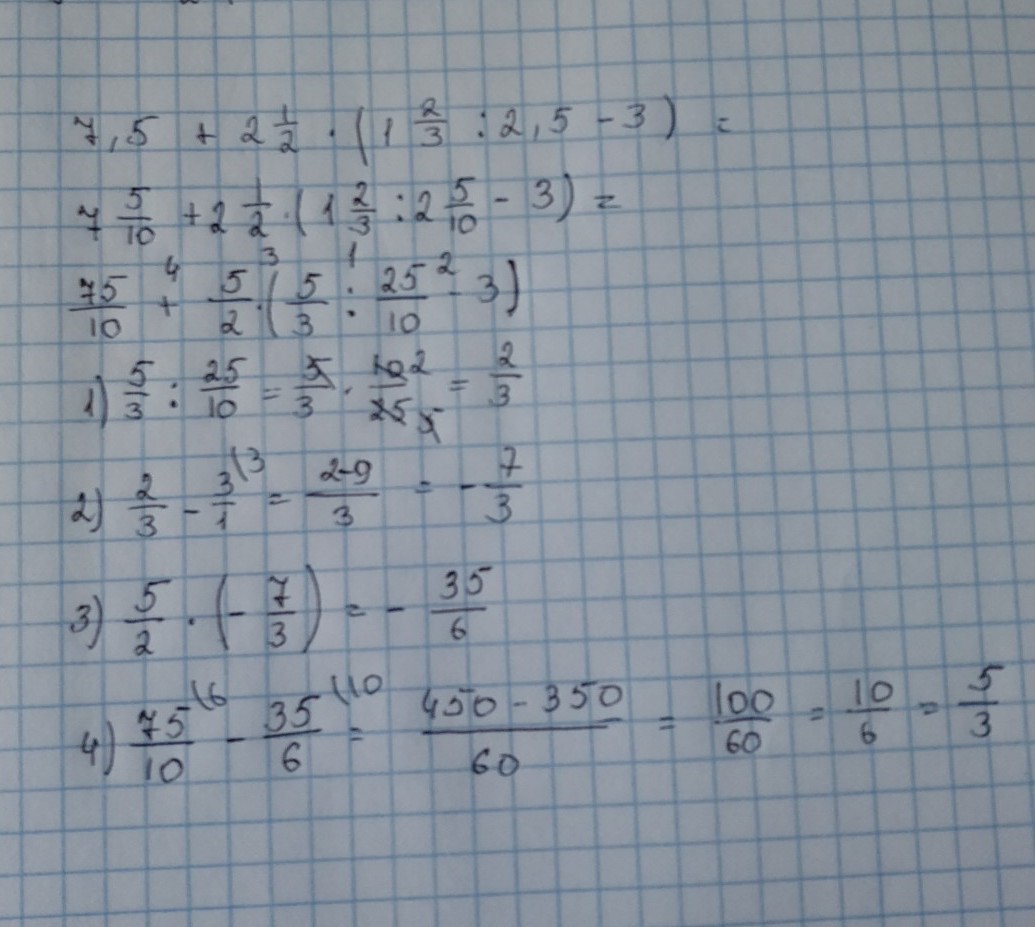 7,5 + 2 1/2 · (1 2/3 : 2,5 - 3) =
7 5/10 + 2 1/2 · (1 2/3 : 2 5/10 - 3) =
75/10 +⁴ 5/2 ·³ (5/3 :¹ 25/10 -² 3)
1) 5/3 : 25/10 = 5/3 · 10 2/25 5 = 2/3
2) 2/3 - 3/1 \3 = 2-9/3 = - 7/3
3) 5/2 · (- 7/3) = - 35/6
4) 75/10 \6 - 35/6 \10 = 450 - 350/60 = 100/60 = 10/6 = 5/3